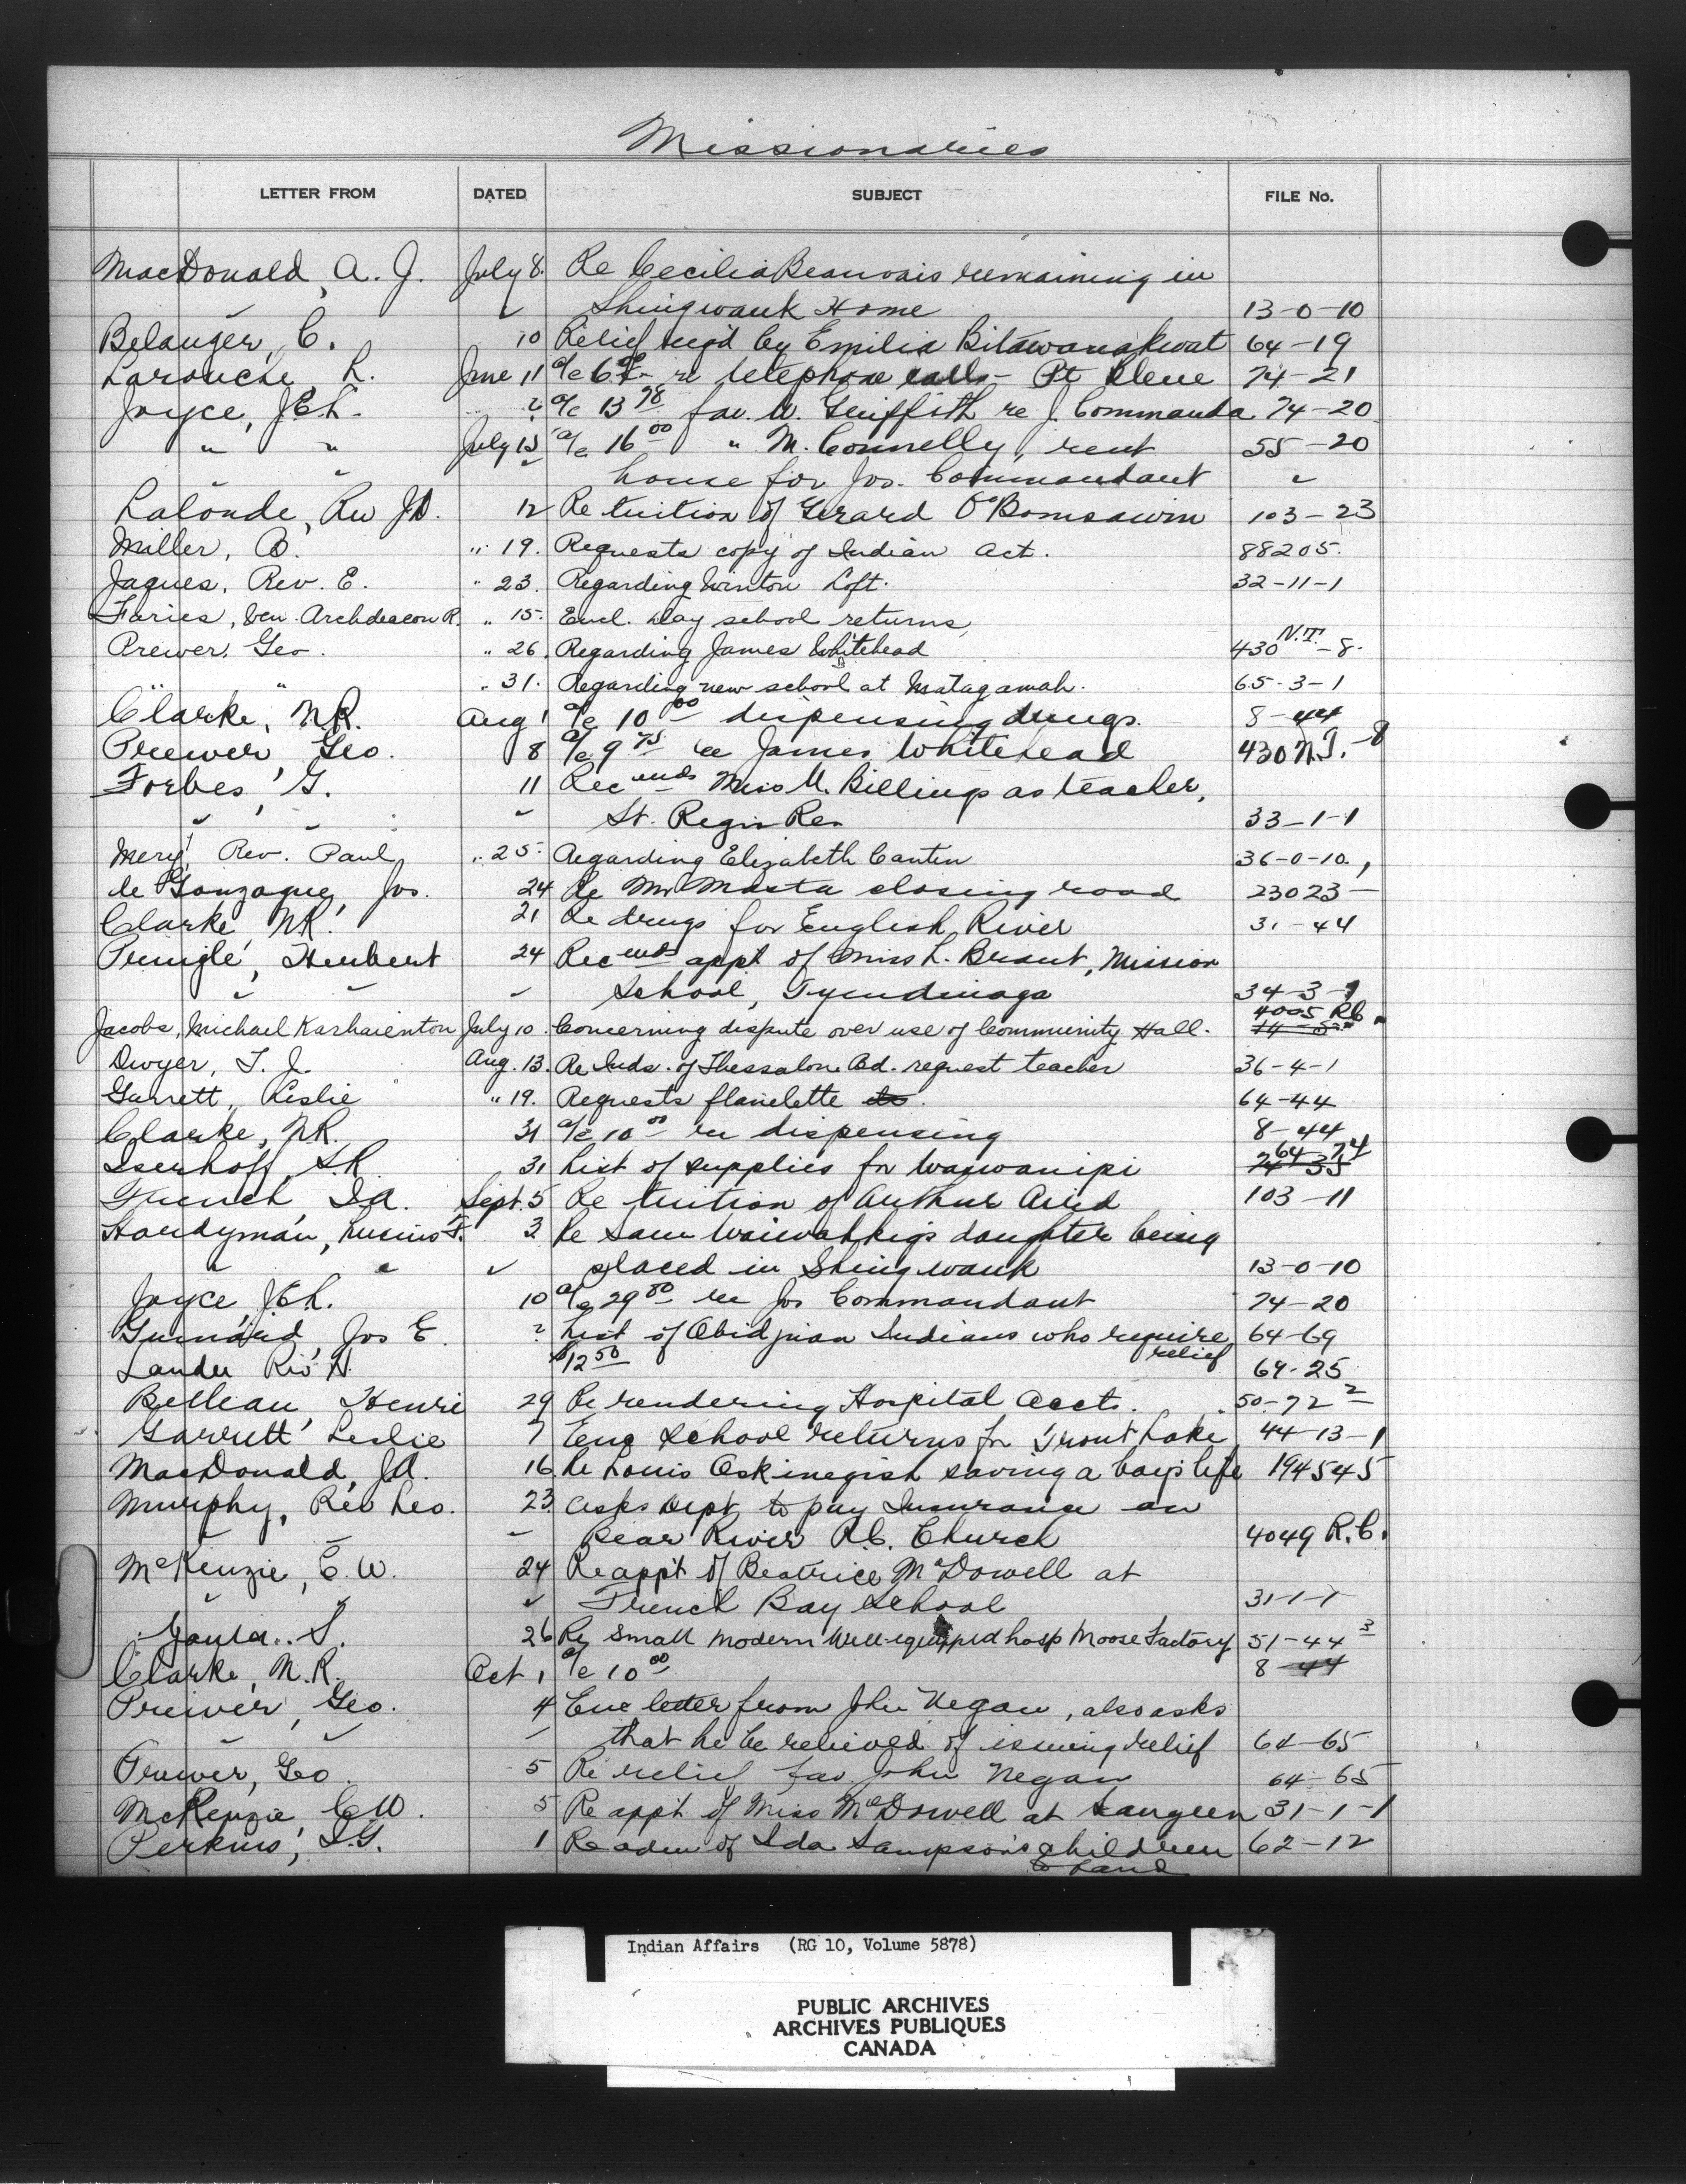 Missionaries
LETTER FROM DATED SUBJECT FILE No.
MacDonald, A. J. July 8. Re Cecilia Beauvais remaining in
" " Shingwauk Home 13-0-10
Belanger, C. 10 Relief req'd by Emilia Bitawanakwat 64-19
Larouche, L. June 11 a/c re telephone calls - Pt Bleue 74-21
Joyce, J.E.L. ? a/c 13 78 fav. W. Griffith re J. Commanda 74-20
" " July 15 a/c 16 00 " M. Connelly, rent 55-20
" " house for Jos. Commandant "
Lalonde, Rev J.D. 12 Re tuition of Gerard O'Bomsawin 103-23
Miller, O. " 19. Requests copy of Indian Act. 88205.
Jaques, Rev. E. " 23. Regarding Winton Loft. 32-11-1
Faries, Ven. Archdeacon R. " 15. Encl. day school returns,
Prewer, Geo. " 26. Regarding James Whitehead 430 N.T.-8.
" " " 31. Regarding new school at Matagamah. 65-3-1
Clarke, N.R. Aug 1 a/c 10 00 dispensing drugs. 8-44
Prewer, Geo. 8 a/c 9 75 re James Whitehead 430 N.T.-8
Forbes, G. 11 Rec ends Miss M. Billings as teacher,
" " " St. Regis Res 33-1-1
Mery, Rev. Paul " 25. Regarding Elizabeth Cantin 36-0-10.
de Gonzague, Jos. 24 Re Mr Masta closing road 23023-
Clarke N.R. 21 Re drugs for English River 31-44
Pringle, Herbert 24 Rec ends appt of Miss L. Brant, Mission
" " " School, Tyendinaga 34-3-9
Jacobs, Michael Karhaienton July 10. Concerning dispute over use of Community Hall. 4005 R.C.
Dwyer, T. J. Aug. 13. Re Inds. of Thessalon Bd. request teacher 36-4-1
Garrett, Leslie " 19. Requests flanelette etc. 64-44
Clarke, N.R. 31 a/c 10 00 re dispensing 8-44
Iserhoff, S.R. 31 List of supplies for Waswanipi 64-74
French, I.A. Sept. 5 Re tuition of Arthur Arid 103-11
Hardyman, F. 3 Re Sam daughter being
" " " placed in Shingwauk 13-0-10
Joyce, J.E.L. 10 a/c 29 80 re Jos Commandant 74-20
Guinard, Jos E ? List of Obidjuan Indians who require relief 64-69
Lander Rev H. $12 50 64-25
Belleau, Henri 29 Re rendering Hospital Accts. 50-72 2
Garrett, Leslie 7 Enc School returns for Trout Lake 44-13-1
MacDonald, J.A. 16 Re Louis Oskinegish saving a boy's life 194545
Murphy, Rev Leo. 23 asks Dept to pay Insurance on
" " " Bear River R.C. Church 4049 R.C.
McKenzie, C.W. 24 Re appt of Beatrice McDowell at
" " " French Bay School 31-1-1
26 Re Small Modern Well-equipped hosp Moose Factory 51-44 3
Clarke, N.R. Oct 1 a/c 10 00 8-44
Prewer, Geo. 4 Enc letter from John Negan, also asks
" " " that he be relieved of issuing relief 64-65
Prewer, Geo. 5 Re relief fav. John Negan 64-65
McKenzie, C.W. 5 Re appt. of Miss McDowell at Saugeen 31-1-1
Perkins, I.G. 1 Re adm of Ida Sampson's children 62-12
to Band
Indian Affairs (RG 10, Volume 5878)
PUBLIC ARCHIVES
ARCHIVES PUBLIQUES
CANADA